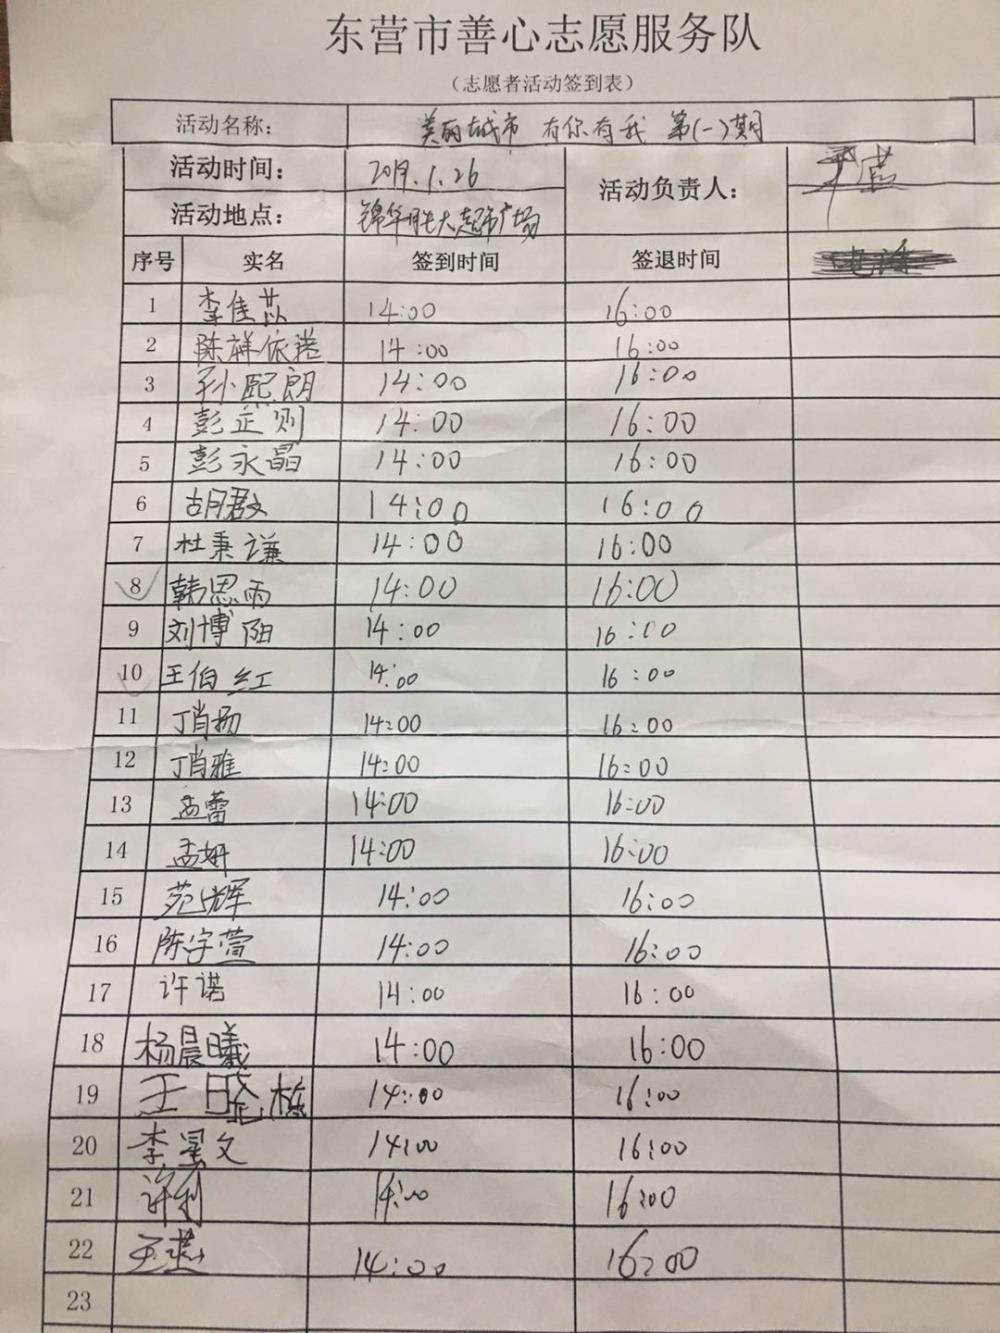 东营市善心志愿服务队
（志愿者活动签到表）
活动名称： 美丽城市 有你有我 第(一)期
活动时间： 2019.1.26 活动负责人：
活动地点： 锦华胜大超市广场
序号 实名 签到时间 签退时间 电话
1 李佳芯 14:00 16:00
2 陈祥依诺 14:00 16:00
3 孙熙朗 14:00 16:00
4 彭正则 14:00 16:00
5 彭永晶 14:00 16:00
6 胡君文 14:00 16:00
7 杜秉谦 14:00 16:00
8 韩恩雨 14:00 16:00
9 刘博阳 14:00 16:00
10 王伯红 14:00 16:00
11 丁肖扬 14:00 16:00
12 丁肖雅 14:00 16:00
13 孟蕾 14:00 16:00
14 孟妍 14:00 16:00
15 苑辉 14:00 16:00
16 陈宇萱 14:00 16:00
17 许诺 14:00 16:00
18 杨晨曦 14:00 16:00
19 王晓栋 14:00 16:00
20 李星文 14:00 16:00
21 许利 14:00 16:00
22 14:00 16:00
23